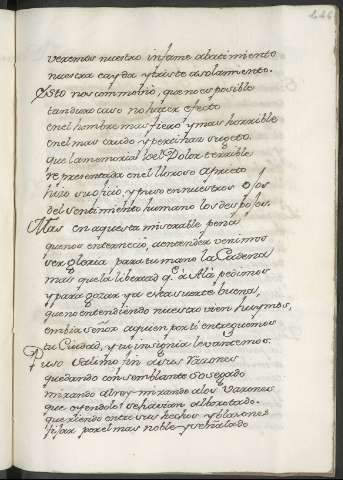 veremos nuestro infame abatimiento
nuestra cayda y triste asolamiento.
Esto nos commobio, que no es posible
tan duro caso no hacer efecto
en el hombre mas fiero y mas horrible
en el mas crudo y pertinaz sugeto.
que la memoria del Dolor terrible
representada en el lloroso aprieto
hizo su oficio, y puso en nuestros ojos
del sentimiento humano los despojos.
Mas en aquesta miserable pena
que nos enternecio, a entender venimos
ser gloria para tu mano la Cadena
mas que la libertad q.e a Alà pedimos
y para gozar ya esta suerte buena,
que no entendiendo nuestro vien huymos,
embia señor a quien por ti entreguemos
tu Ciudad, y tu insignia levantemos.
Puso Salicho fin a sus razones
quedando con semblante sosegado
mirando al rey mirando a los varones
que oyendole se havian alborotado.
que riendo entre sus hechos y blasones
fijar por el mas noble y señalado